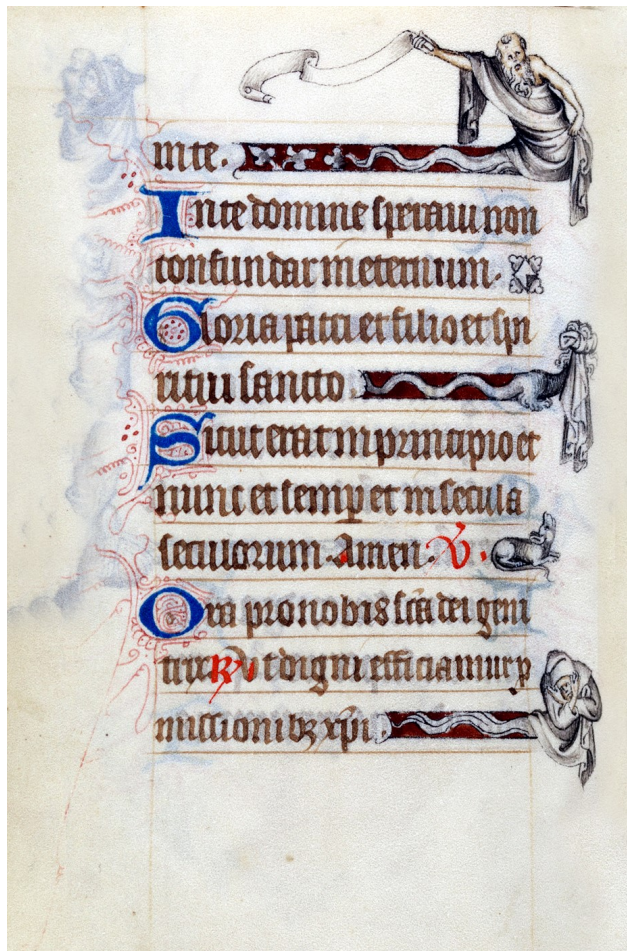 in te.
In te domine speraui non
confundar in eternum.
Gloria patri et filio et spi
ritui sancto
Sicut erat in principio et
nunc et semꝑ et in secula
seculorum. Amen. V.
Ora pro nobis sc̄a dei geni
trix R̄. Ut digni efficiamur ꝓ
missionibꝫ xp̄i.